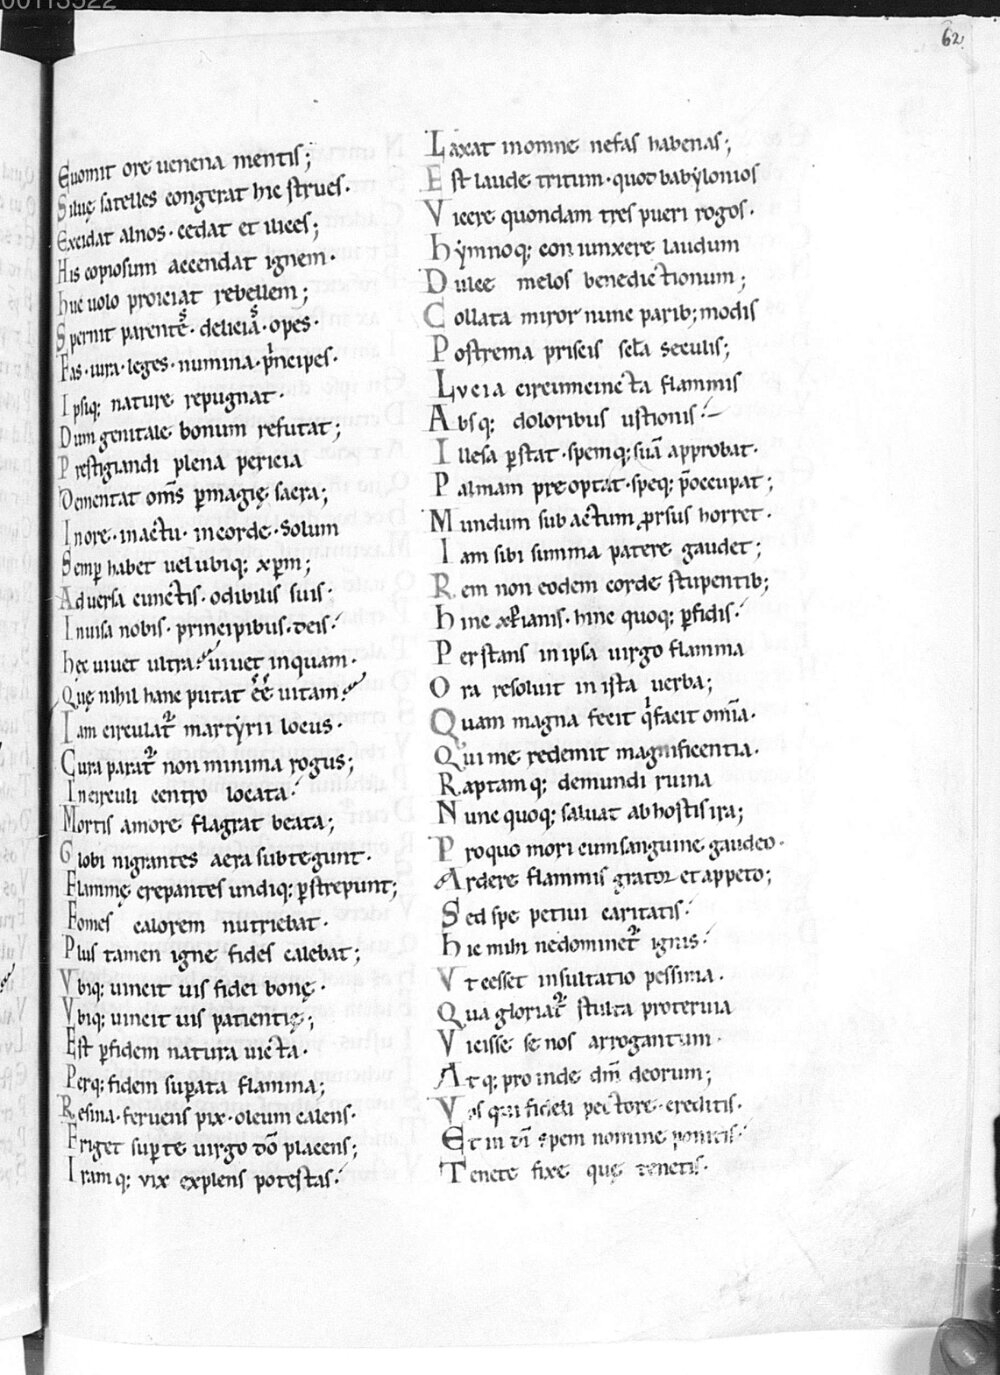 00113522
62
Euomit ore uenena mentis;
Siluę satelles congerat hic strues.
Excidat alnos. cedat et ilices;
His copiosum accendat ignem.
huc uolo proiciat rebellem;
Spernit parentēs. deliciās. opes.
Fas. iura. leges. numina. p̄ncipes.
Ipsiq; nature repugnat.
Dum genitale bonum refutat;
Prestigiandi plena pericia
Dementat om̄s p̲ magicę sacra;
In ore. in actu. in corde. solum
Semp̲ habet uel ubiq; xp̄m;
Aduersa cunctis. odibilis suis;
Inuisa nobis. principibus. deis.
hęc uiuet ultra. uiuet inquam.
Quę nihil hanc putat ēē uitam
Iam circulat᷑ martyrii locus.
Cura parat᷑ non minima rogus;
In circuli centro locata.
Mortis amore flagrat beata;
Globi nigrantes aera subtegunt.
Flammę crepantes undiq; p̲strepunt;
Fomes calorem nutriebat.
Plus tamen igne fides calebat;
Vbiq; uincit uis fidei bonę.
Vbiq; uincit uis patientię;
Est p̲ fidem natura uicta.
Perq; fidem sup̲ata flamma;
Resina. feruens pix. oleum calens.
Friget sup̲ te uirgo dō placens;
Iramq; uix explens potestas.
Laxat in omne nefas habenas;
Est laude tritum. quod babylonios
Vicere quondam tres pueri rogos.
hymnoq; coniunxere laudum
Dulce melos benedictionum;
Collata miror nunc parib; modis
Postrema priscis scl̄a seculis;
Lucia circumcincta flammis
Absq; doloribus ustionis.
Illesa p̲stat. spemq; suā approbat.
Palmam preoptat. speq; p̄occupat;
Mundum sub actum prorsus horret.
Iam sibi summa patere gaudet;
Rem non eodem corde stupentib;
hinc xp̄ianis. hinc quoq; p̲fidis.
Perstans in ipsa uirgo flamma
Ora resoluit in ista uerba;
Quam magna fecit qͥ facit om̄ia.
Qui me redemit magnificentia.
Raptamq; de mundi ruina
Nunc quoq; saluat ab hostis ira;
Pro quo mori cum sanguine gaudeo.
Ardere flammis grator et appeto;
Sed spe petiui caritatis.
hic mihi ne dominet᷑ ignis.
Vt cesset insultatio pessima.
Qua gloriat᷑ stulta proteruia
Vicisse se nos arrogantum.
Atq; proinde dm̄ deorum;
Vos qui fideli pectore creditis.
Et in dī spem nomine ponitis.
Tenete fixe que tenetis.